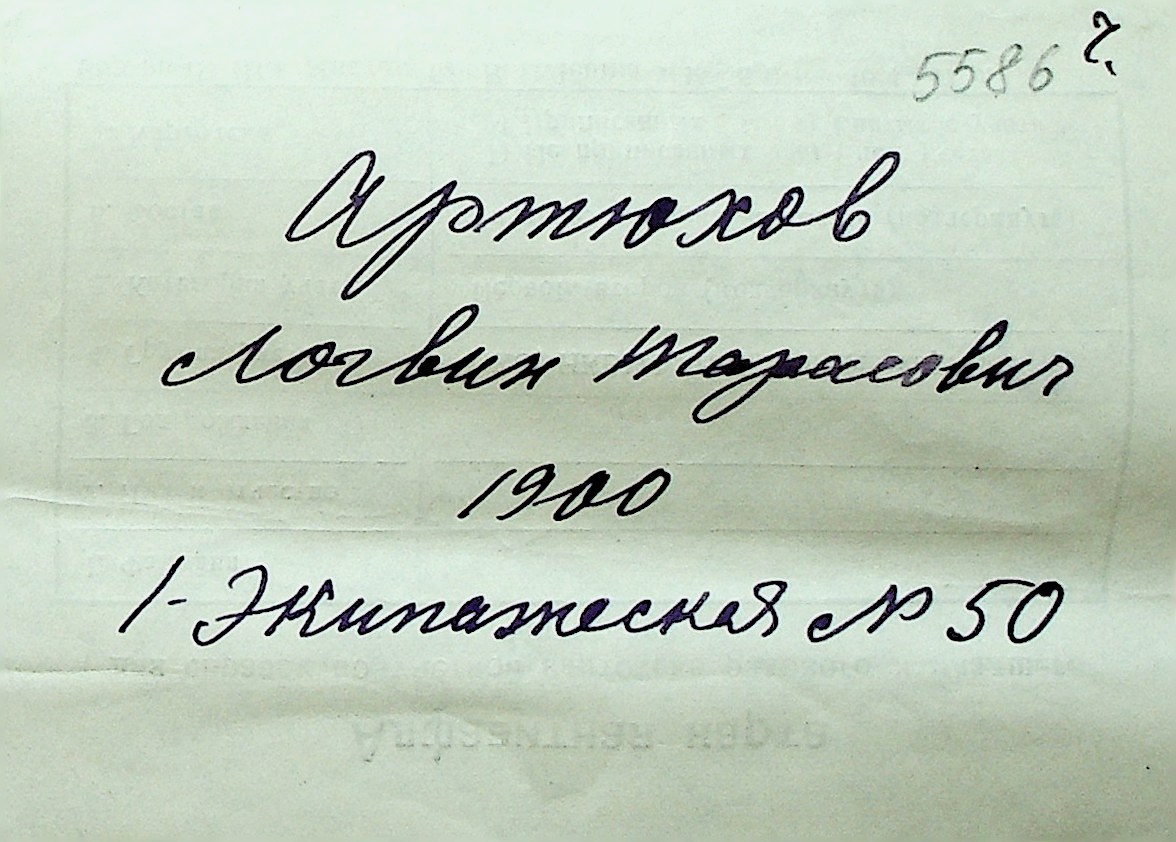 5586 ч.
Артюхов
Логвин Тарасович
1900
1-Экипажеская № 50